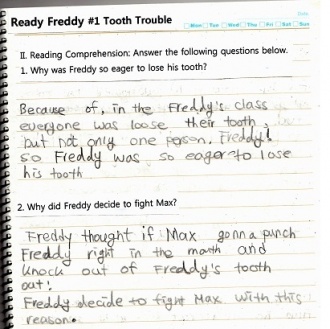 Ready Freddy #1 Tooth Trouble
Date
Mon Tue Wed Thu Fri Sat Sun
II. Reading Comprehension: Answer the following questions below.
1. Why was Freddy so eager to lose his tooth?
Because of, in the Freddy's class
everyone was loose their tooth,
but not only one person, Freddy!
so Freddy was so eager to lose
his tooth
2. Why did Freddy decide to fight Max?
Freddy thought if Max gonna punch
Freddy right in the mouth and
knock out of Freddy's tooth
out!
Freddy decide to fight Max with this
reason.